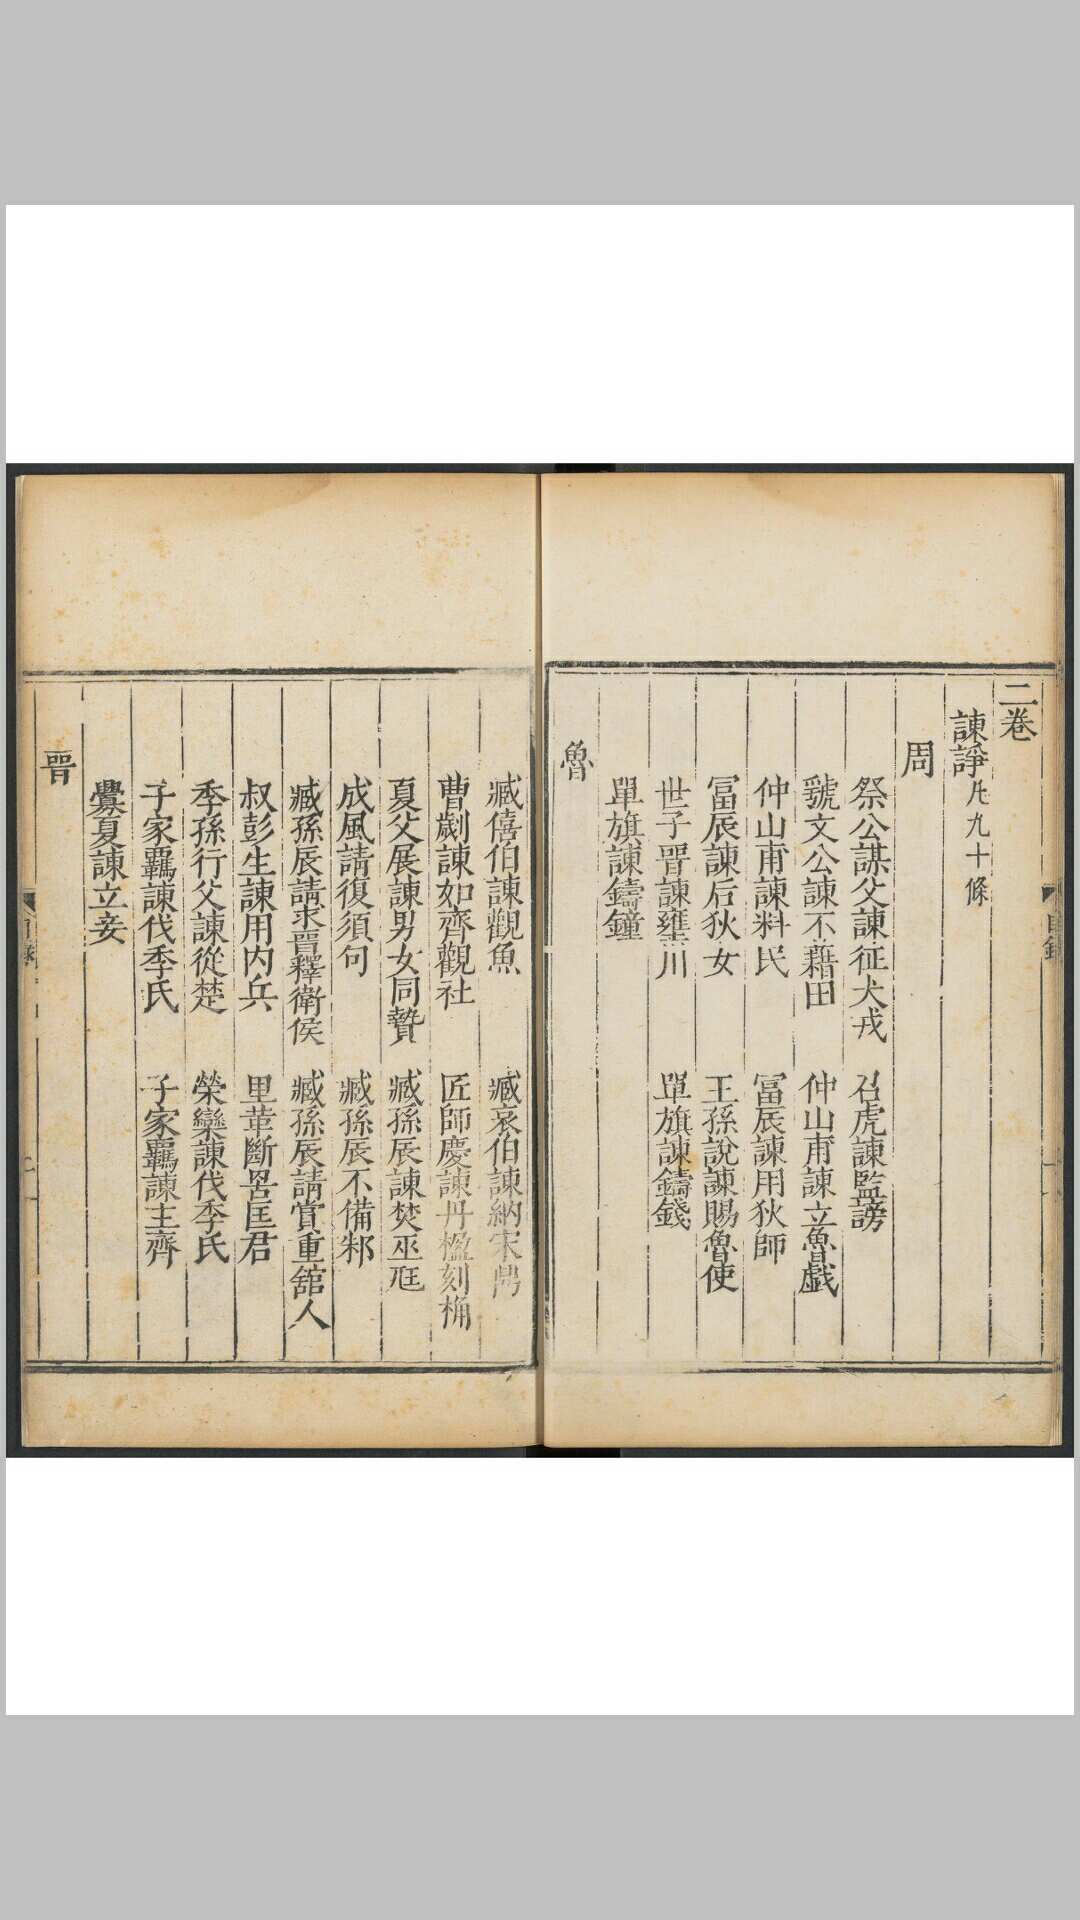 二卷
諫諍凡九十條
周
祭公謀父諫征犬戎　召虎諫監謗
虢文公諫不藉田　仲山甫諫立魯戯
仲山甫諫料民　冨辰諫用狄師
冨辰諫后狄女　王孫說諫賜魯使
世子晋諫壅川　單旗諫鑄錢
單旗諫鑄鐘
魯
臧僖伯諫觀魚　臧哀伯諫納宋鼎
曹劌諫如齊觀社　匠師慶諫丹楹刻桷
夏父展諫男女同贄　臧孫辰諫焚巫尫
成風請復須句　臧孫辰不備邾
臧孫辰請求晋釋衛侯　臧孫辰請賞重舘人
叔彭生諫用内兵　里革斷罟匡君
季孫行父諫從楚　榮欒諫伐季氏
子家覊諫伐季氏　子家覊諫主齊
釁夏諫立妾
晋
目錄